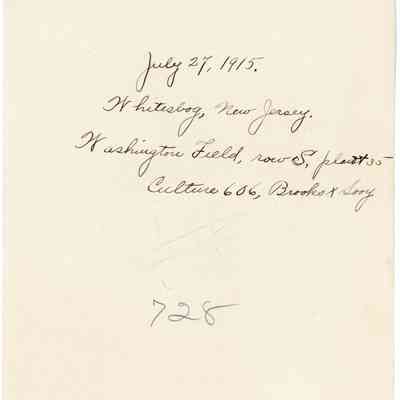 July 27, 1915.
Whitesbog, New Jersey.
Washington Field, row S, plant 35
Culture 606, Brooks x Sooy
728